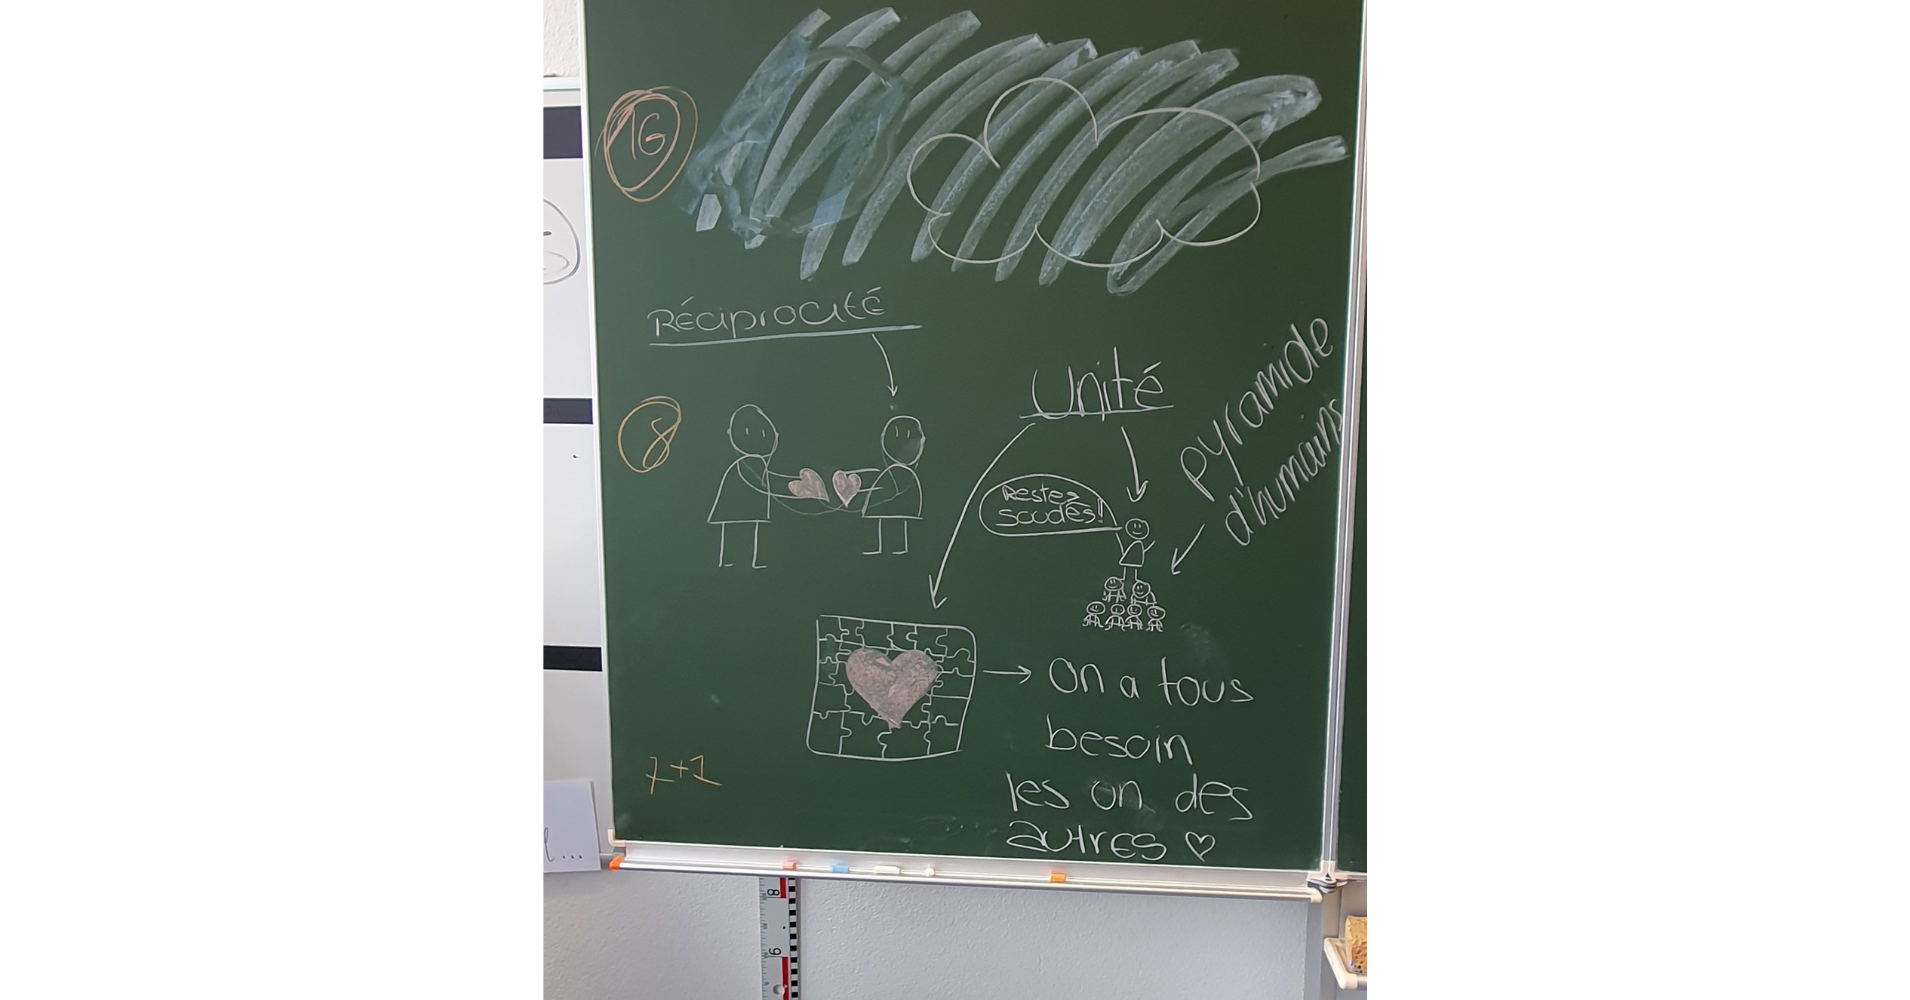 1G
Réciprocité
Unité
pyramide
d'humains
8
Restez
soudés!
on a tous
besoin
les un des
autres ♡
7+1
8
9